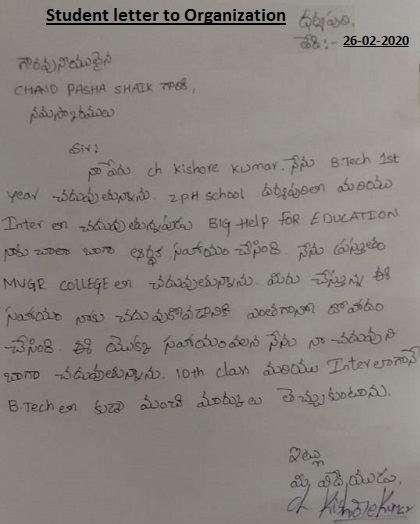 Student letter to Organization
ధర్మపురి,
తేది:- 26-02-2020
గౌరవనీయులైన
CHAND PASHA SHAIK గారికి,
నమస్కారములు
Sir:
నా పేరు ch kishore kumar. నేను B.Tech 1st
year చదువుతున్నాను. ZPH school ధర్మపురిలా మరియు
Inter లా చదువుతున్నపుడు BIG HELP FOR EDUCATION
నాకు చాలా బాగా ఆర్థిక సహాయం చేసింది. నేను ప్రస్తుతం
MVGR COLLEGE లా చదువుతున్నాను. మీరు చేస్తున్న ఈ
సహాయం నాకు చదువుకోవడానికి ఎంతగానో దోహదం
చేసింది. ఈ యొక్క సహాయంవలన నేను నా చదువుని
బాగా చదువుతున్నాను. 10th class మరియు Inter లాగానే
B.Tech లా కుడా మంచి మార్కులు తెచ్చుకుంటాను.
ఇట్లు
మీ విదేయుడు,
ch Kishore Kumar